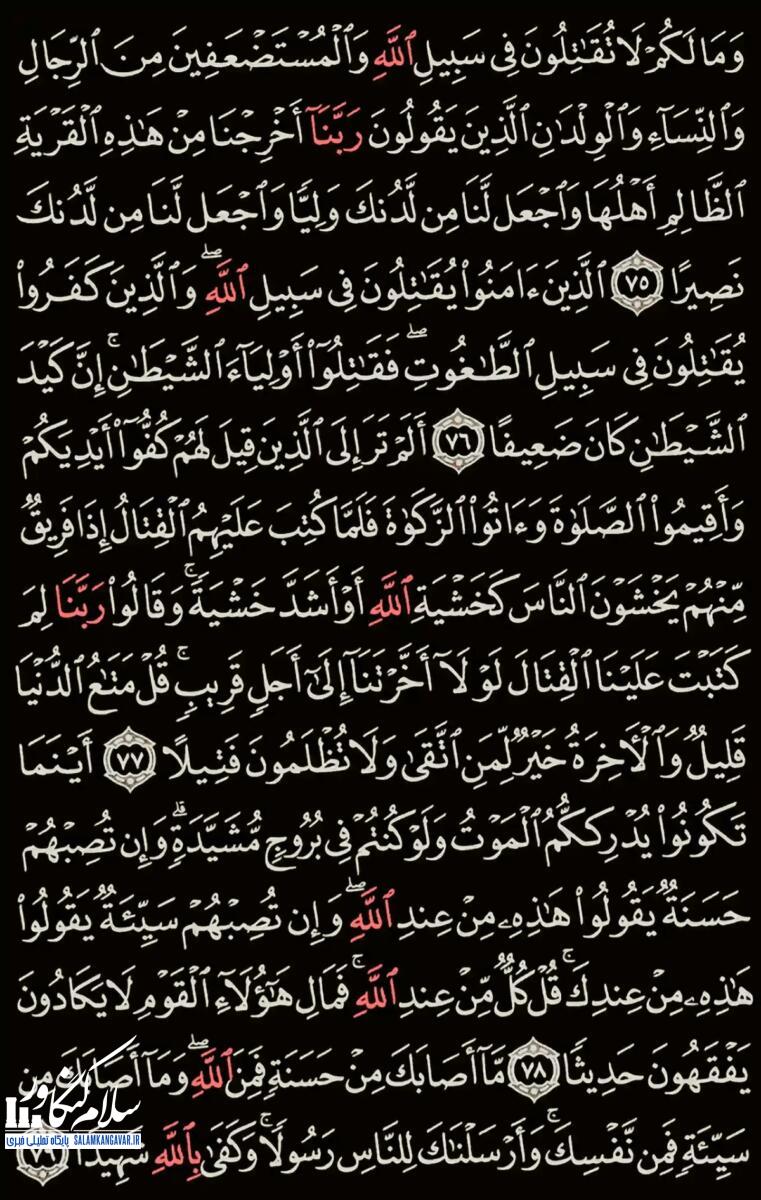 وَمَا لَكُمْ لَا تُقَٰتِلُونَ فِى سَبِيلِ ٱللَّهِ وَٱلْمُسْتَضْعَفِينَ مِنَ ٱلرِّجَالِ
وَٱلنِّسَآءِ وَٱلْوِلْدَٰنِ ٱلَّذِينَ يَقُولُونَ رَبَّنَآ أَخْرِجْنَا مِنْ هَٰذِهِ ٱلْقَرْيَةِ
ٱلظَّالِمِ أَهْلُهَا وَٱجْعَل لَّنَا مِن لَّدُنكَ وَلِيًّا وَٱجْعَل لَّنَا مِن لَّدُنكَ
نَصِيرًا ٧٥ ٱلَّذِينَ ءَامَنُوا۟ يُقَٰتِلُونَ فِى سَبِيلِ ٱللَّهِ ۖ وَٱلَّذِينَ كَفَرُوا۟
يُقَٰتِلُونَ فِى سَبِيلِ ٱلطَّٰغُوتِ ۖ فَقَٰتِلُوٓا۟ أَوْلِيَآءَ ٱلشَّيْطَٰنِ ۚ إِنَّ كَيْدَ
ٱلشَّيْطَٰنِ كَانَ ضَعِيفًا ٧٦ أَلَمْ تَرَ إِلَى ٱلَّذِينَ قِيلَ لَهُمْ كُفُّوٓا۟ أَيْدِيَكُمْ
وَأَقِيمُوا۟ ٱلصَّلَوٰةَ وَءَاتُوا۟ ٱلزَّكَوٰةَ فَلَمَّا كُتِبَ عَلَيْهِمُ ٱلْقِتَالُ إِذَا فَرِيقٌ
مِّنْهُمْ يَخْشَوْنَ ٱلنَّاسَ كَخَشْيَةِ ٱللَّهِ أَوْ أَشَدَّ خَشْيَةً ۚ وَقَالُوا۟ رَبَّنَا لِمَ
كَتَبْتَ عَلَيْنَا ٱلْقِتَالَ لَوْلَآ أَخَّرْتَنَآ إِلَىٰٓ أَجَلٍ قَرِيبٍ ۗ قُلْ مَتَٰعُ ٱلدُّنْيَا
قَلِيلٌ وَٱلْءَاخِرَةُ خَيْرٌ لِّمَنِ ٱتَّقَىٰ وَلَا تُظْلَمُونَ فَتِيلًا ٧٧ أَيْنَمَا
تَكُونُوا۟ يُدْرِككُّمُ ٱلْمَوْتُ وَلَوْ كُنتُمْ فِى بُرُوجٍ مُّشَيَّدَةٍ ۗ وَإِن تُصِبْهُمْ
حَسَنَةٌ يَقُولُوا۟ هَٰذِهِۦ مِنْ عِندِ ٱللَّهِ ۖ وَإِن تُصِبْهُمْ سَيِّئَةٌ يَقُولُوا۟
هَٰذِهِۦ مِنْ عِندِكَ ۚ قُلْ كُلٌّ مِّنْ عِندِ ٱللَّهِ ۖ فَمَالِ هَٰٓؤُلَآءِ ٱلْقَوْمِ لَا يَكَادُونَ
يَفْقَهُونَ حَدِيثًا ٧٨ مَّآ أَصَابَكَ مِنْ حَسَنَةٍ فَمِنَ ٱللَّهِ ۖ وَمَآ أَصَابَكَ مِن
سَيِّئَةٍ فَمِن نَّفْسِكَ ۚ وَأَرْسَلْنَٰكَ لِلنَّاسِ رَسُولًا ۚ وَكَفَىٰ بِٱللَّهِ شَهِيدًا ٧٩
سلام کنگاور
پایگاه تحلیلی خبری SALAMKANGAVAR.IR